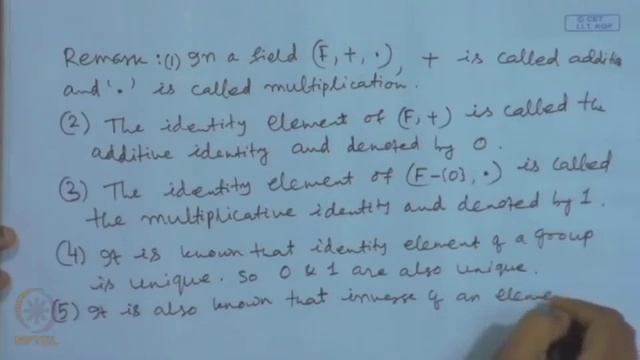 © CET
I.I.T. KGP
Remark : (1) In a field (F, +, ·), + is called additi
and '·' is called multiplication.
(2) The identity element of (F, +) is called the
additive identity and denoted by 0.
(3) The identity element of (F-{0}, ·) is called
the multiplicative identity and denoted by 1.
(4) It is known that identity element of a group
is unique. So 0 & 1 are also unique.
(5) It is also known that inverse of an eleme
NPTEL